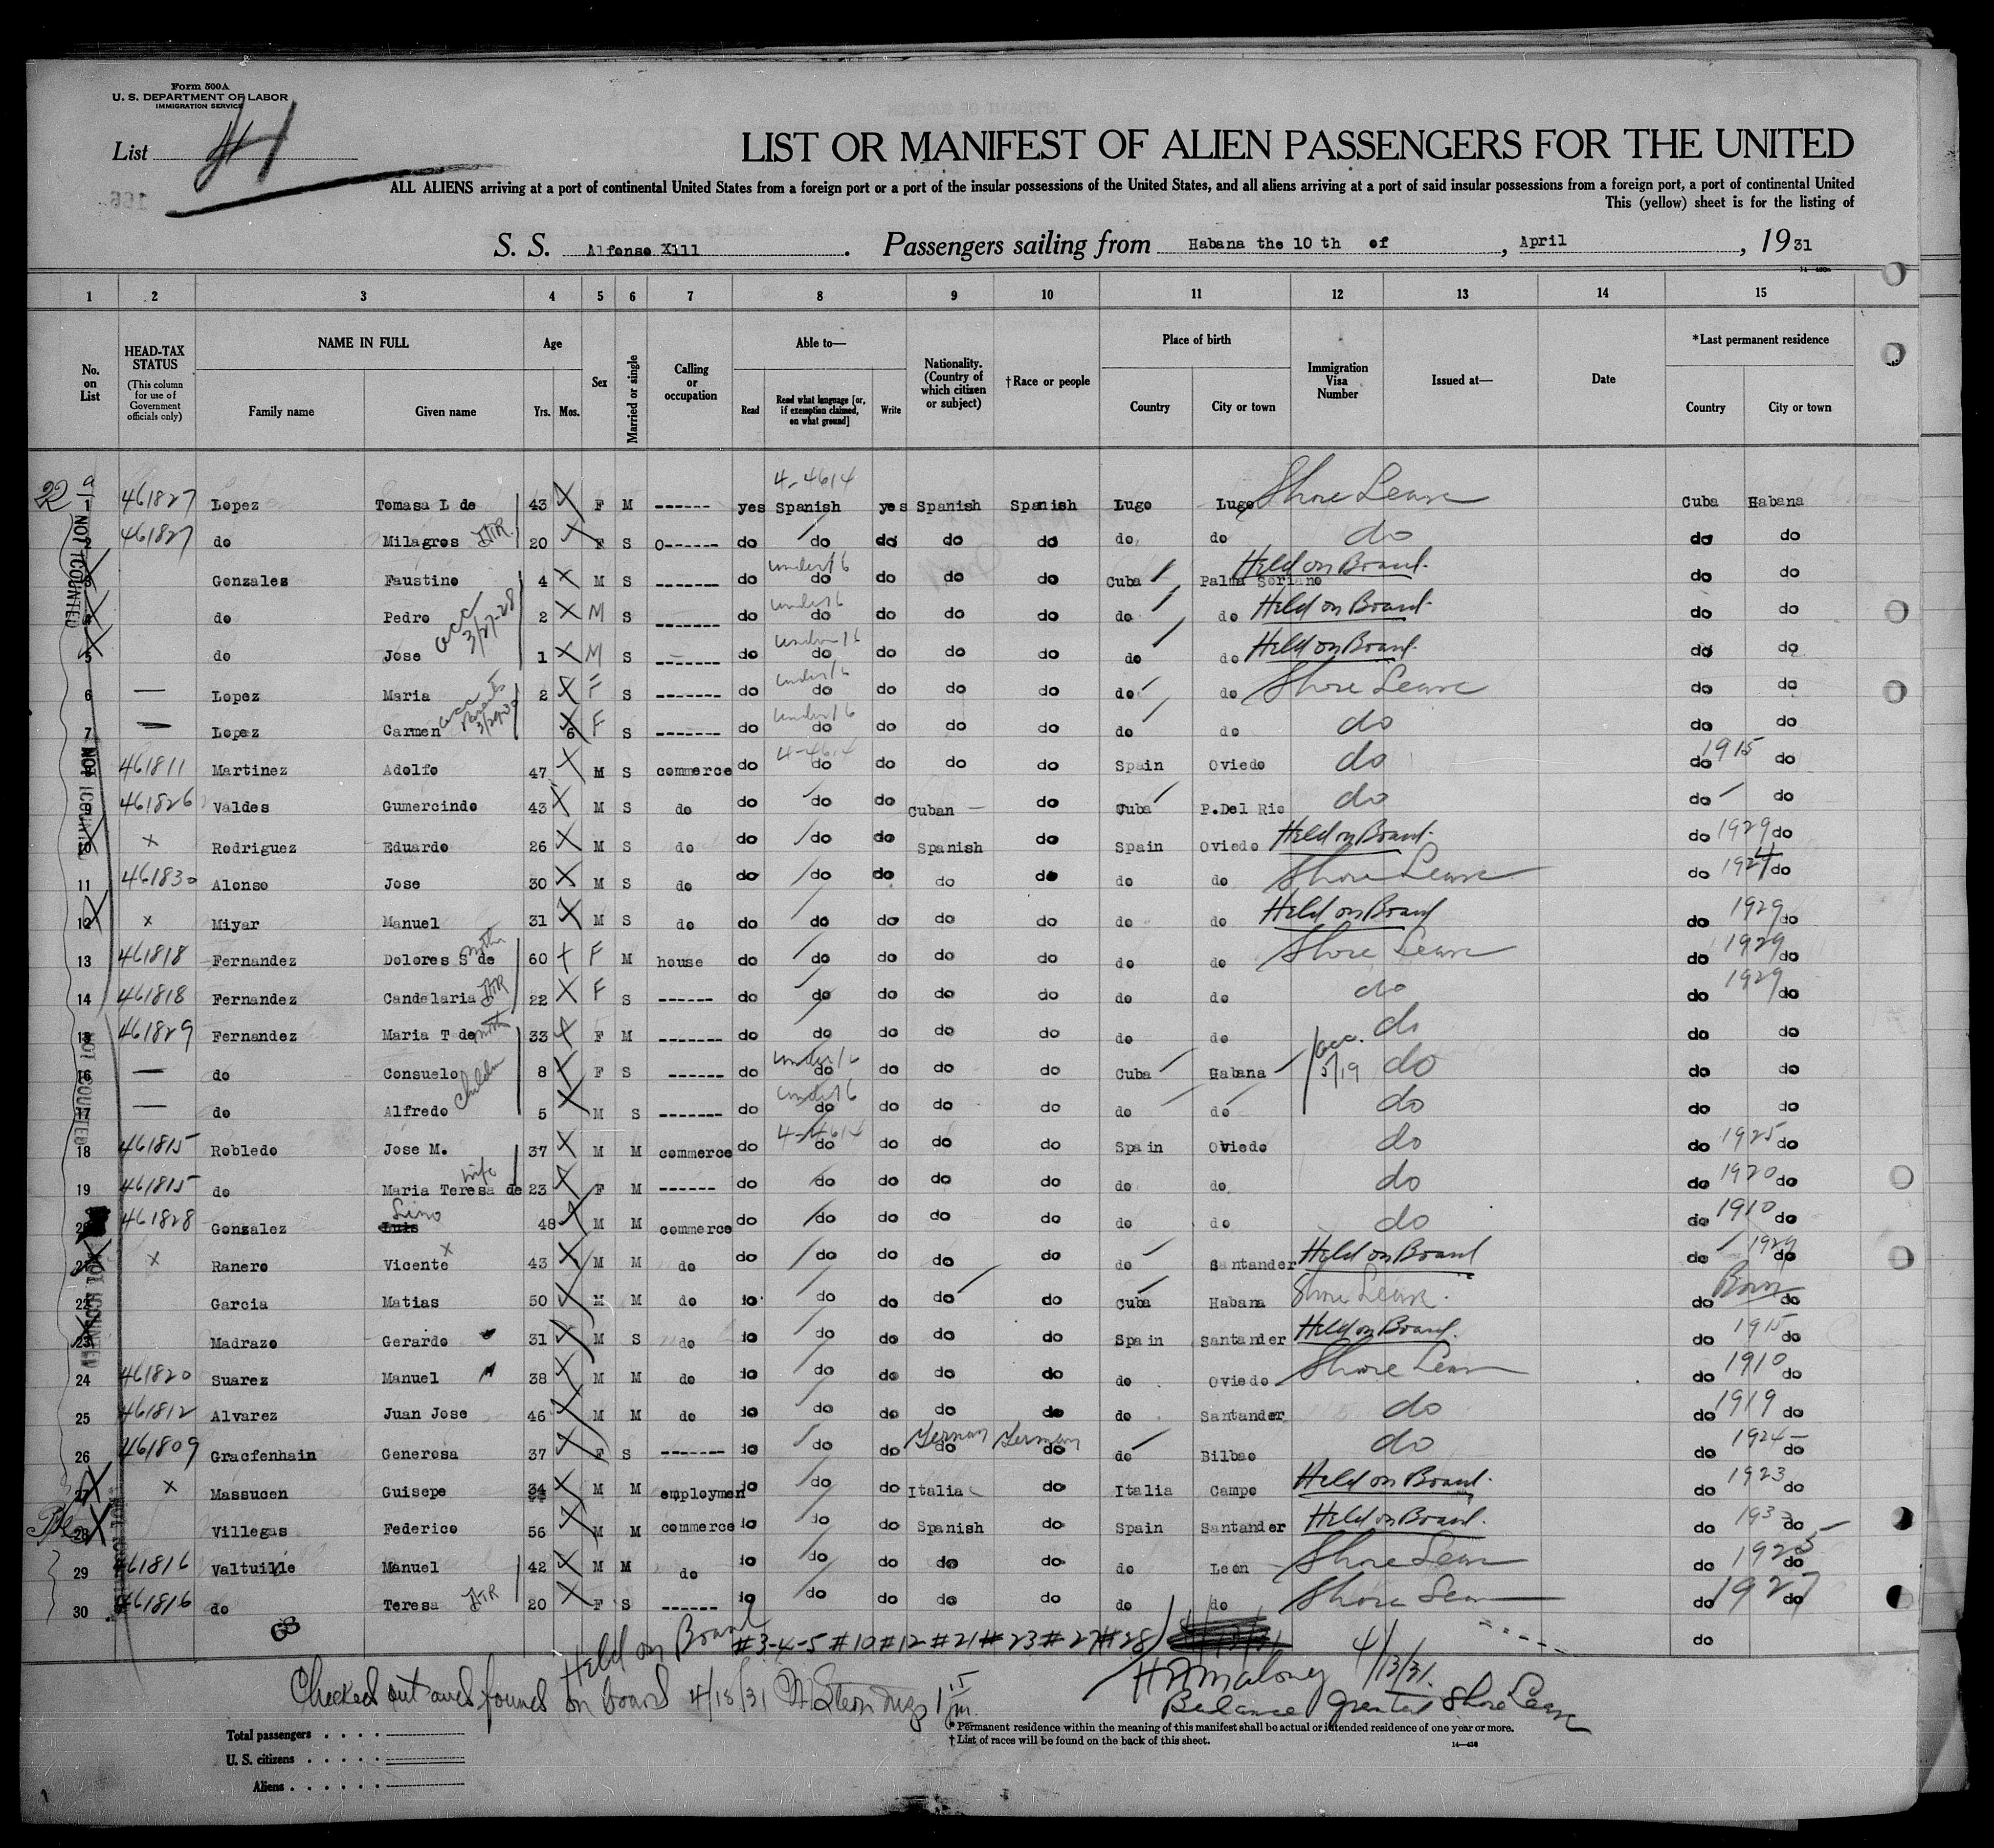 Form 500A
U. S. DEPARTMENT OF LABOR
IMMIGRATION SERVICE
List
LIST OR MANIFEST OF ALIEN PASSENGERS FOR THE UNITED
ALL ALIENS arriving at a port of continental United States from a foreign port or a port of the insular possessions of the United States, and all aliens arriving at a port of said insular possessions from a foreign port, a port of continental United
This (yellow) sheet is for the listing of
S. S. Alfonso X111 . Passengers sailing from Habana the 10 th of , April , 1931
1 2 3 4 5 6 7 8 9 10 11 12 13 14 15
No. on List
HEAD-TAX STATUS (This column for use of Government officials only)
NAME IN FULL Family name Given name
Age Yrs. Mos.
Sex
Married or single
Calling or occupation
Able to— Read Read what language [or, if exemption claimed, on what ground] Write
Nationality. (Country of which citizen or subject)
†Race or people
Place of birth Country City or town
Immigration Visa Number
Issued at—
Date
*Last permanent residence Country City or town
22
4-4614
1 461827 Lopez Tomasa L de 43 F M ------ yes Spanish yes Spanish Spanish Lugo Lugo Shore Leave Cuba Habana
2 461827 do Milagros 20 F S O------ do do do do do do do do do do
3 Gonzales Faustino 4 M S ------- do under 16 do do do do Cuba Palma Soriano Held on Board. do do
4 do Pedro 2 M S ------- do under 16 do do do do do do Held on Board. do do
acc 3/27-28
5 do Jose 1 M S ------- do under 16 do do do do do do Held on Board. do do
6 — Lopez Maria 2 F S ------- do under 16 do do do do do do Shore Leave do do
7 — Lopez Carmen 6 F S ------- do under 16 do do do do do do do do do
8 461811 Martinez Adolfo 47 M S commerce do 4-4614 do do do do Spain Oviedo do do 1915 do
9 461826 Valdes Gumercindo 43 M S do do do do Cuban do Cuba P.Del Rio do do do
10 x Rodriguez Eduardo 26 M S do do do do Spanish do Spain Oviedo Held on Board. do 1929 do
11 461830 Alonso Jose 30 M S do do do do do do do do Shore Leave do 1924 do
12 x Miyar Manuel 31 M S do do do do do do do do Held on Board do 1929 do
13 461818 Fernandez Dolores S de 60 F M house do do do do do do do Shore Leave do 1929 do
14 461818 Fernandez Candelaria 22 F S ------ do do do do do do do do do 1929 do
15 461829 Fernandez Maria T de 33 F M ------- do do do do do do do do do do
16 — do Consuelo children 8 F S ------ do under 16 do do do do Cuba Habana acc. 5/19 do do do
17 — do Alfredo 5 M S ------- do under 16 do do do do do do do do do
18 461815 Robledo Jose M. 37 M M commerce do 4-4614 do do do do Spain Oviedo do do 1925 do
19 461815 do Maria Teresa de wife 23 F M ------ do do do do do do do do do 1920 do
20 461828 Gonzalez Luis Lino 48 M M commerce do do do do do do do do do 1910 do
21 x Ranero Vicente x 43 M M do do do do do do do Santander Held on Board do 1929 do
22 Garcia Matias 50 M M do do do do do do Cuba Habana Shore Leave. do Born do
23 Madrazo Gerardo 31 M S do do do do do do Spain Santander Held on Board. do 1915 do
24 461820 Suarez Manuel 38 M M do do do do do do do Oviedo Shore Leave do 1910 do
25 461812 Alvarez Juan Jose 46 M M do do do do do do do Santander do do 1919 do
26 461809 Gracfenhain Generosa 37 F S ------- do do do do German do German do Bilbao do do 1924 do
27 x Massucen Guisepe 34 M M employmen do do do Italia do Italia Campo Held on Board. do 1923 do
28 Villegas Federico 56 M M commerce do do do Spanish do Spain Santander Held on Board. do do
29 461816 Valtuille Manuel 42 M M do do do do do do do Leon Shore Leave do 1925 do
30 461816 do Teresa 20 F S ------ do do do do do do do Shore Leave do 1927 do
NOT COUNTED
NOT COUNTED
NOT COUNTED
NOT COUNTED
do
68
Held on Board #3-4-5 #10 #12 #21 #23 #27 #28
H Maloney 4/13/31.
Checked out and found on board 4/18/31
Balance granted Shore Leave
Total passengers . . . .
U. S. citizens . . . . .
Aliens . . . . . .
* Permanent residence within the meaning of this manifest shall be actual or intended residence of one year or more.
† List of races will be found on the back of this sheet.
14—436